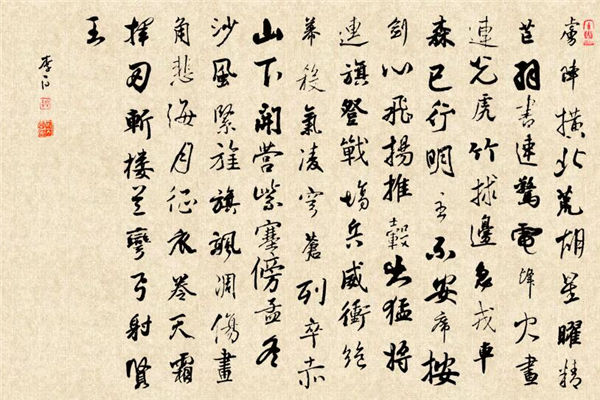 虜陣橫北荒胡星曜精
芒羽書速驚電烽火畫
連光虎竹救邊急戎車
森已行明主不安席按
劍心飛揚推轂出猛將
連旗登戰場兵威衝絕
幕殺氣凌穹蒼列卒赤
山下開營紫塞傍孟冬
沙風緊旌旗颯凋傷畫
角悲海月征衣卷天霜
揮刃斬樓蘭彎弓射賢
王
李白